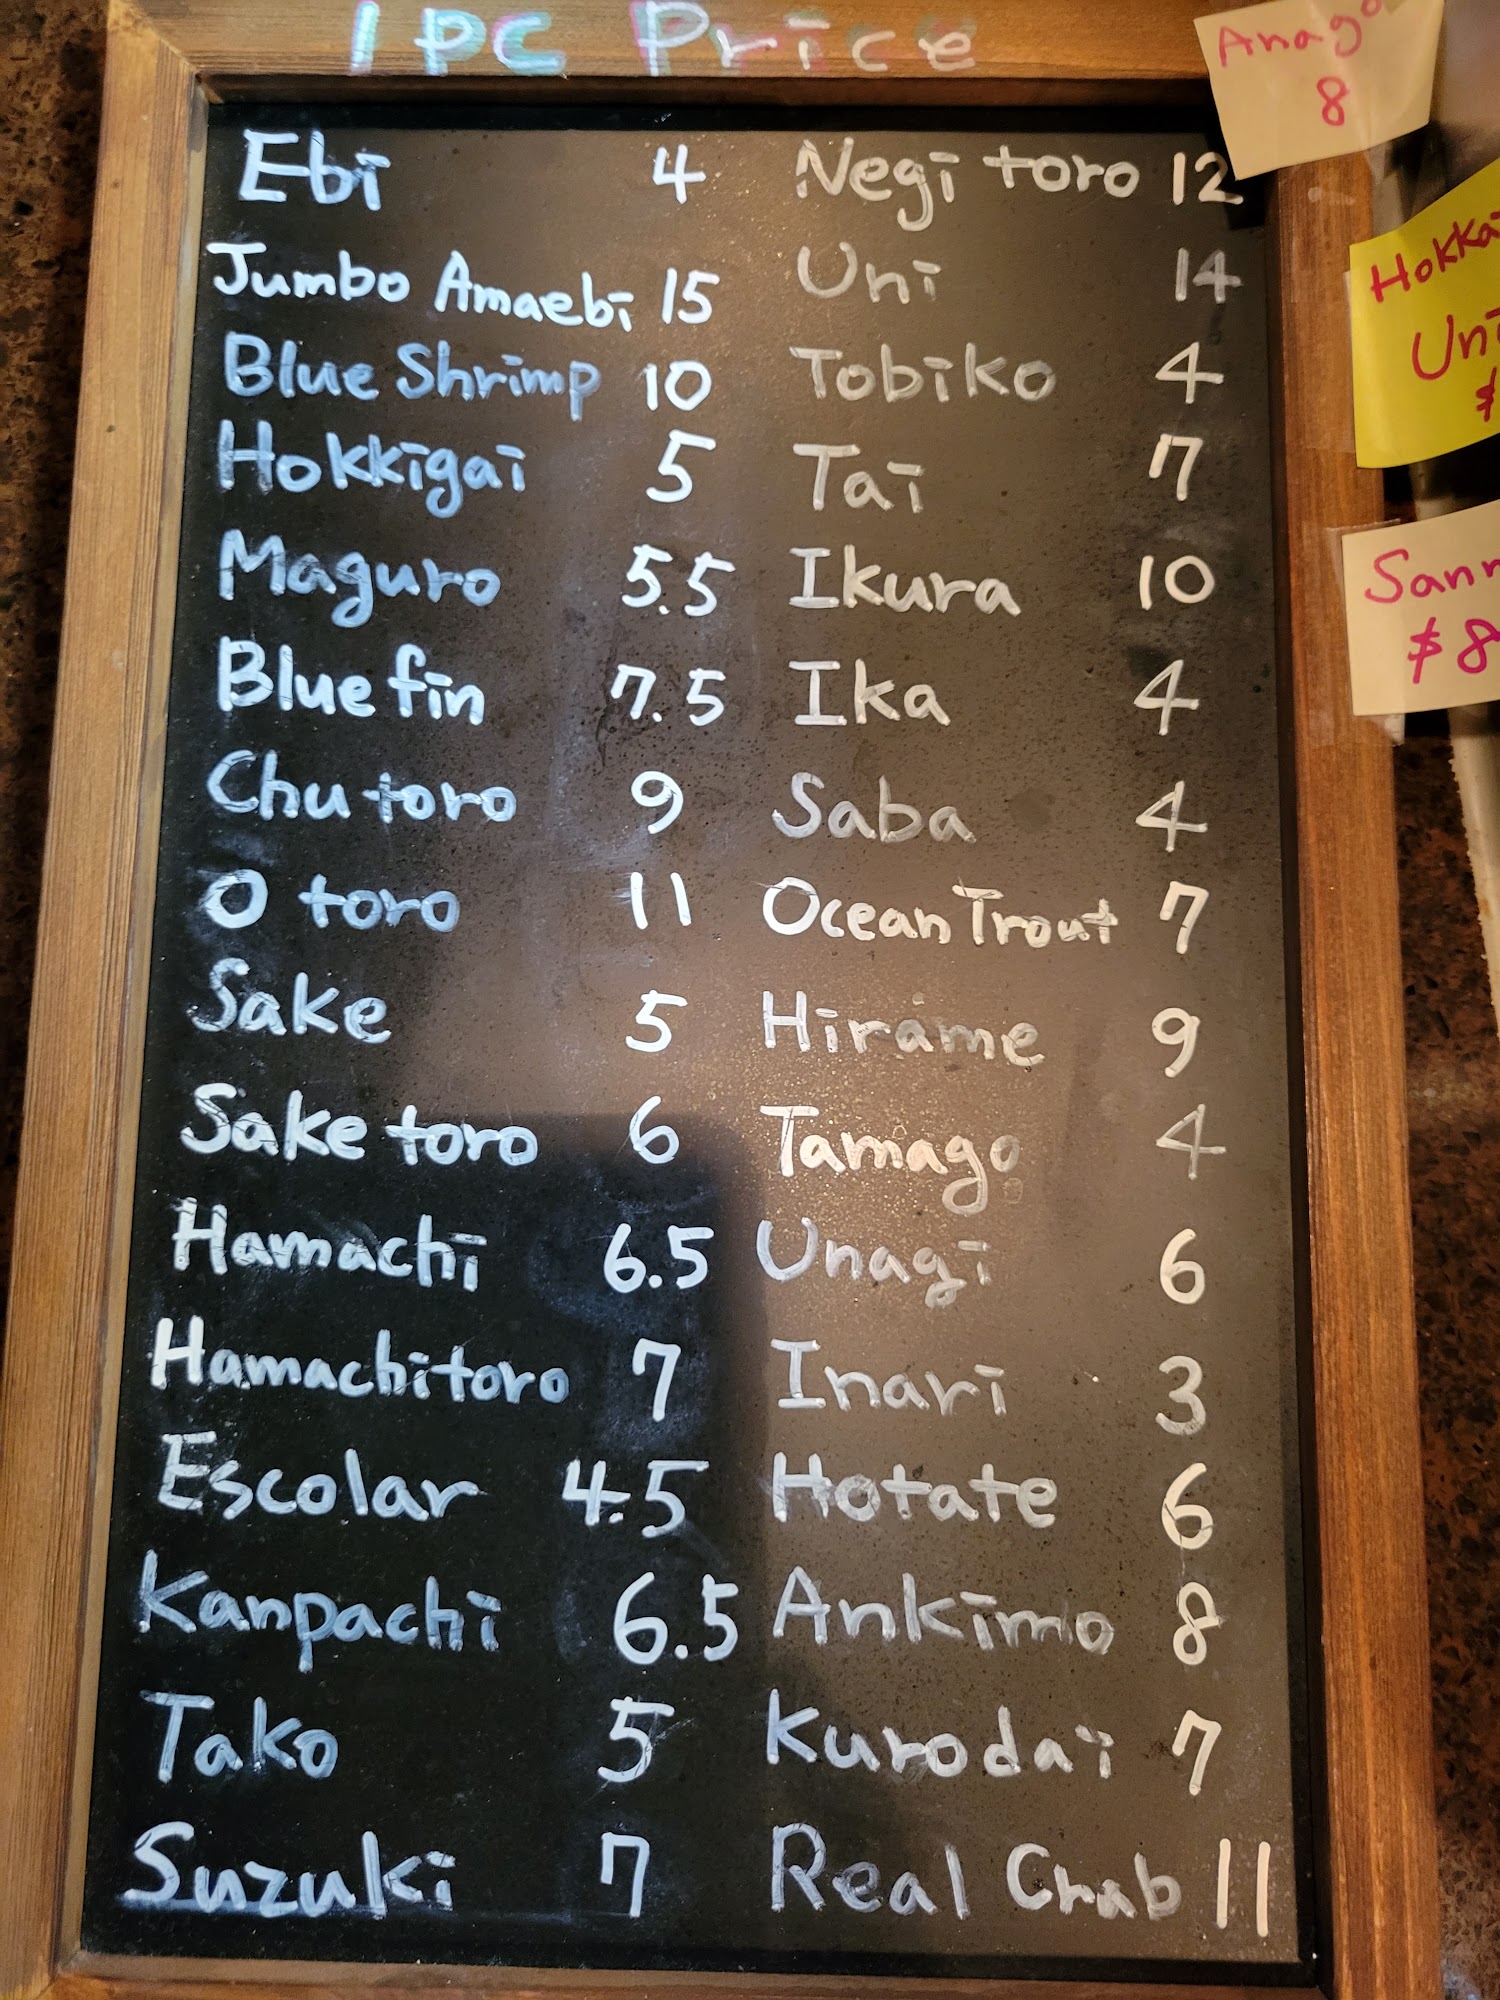 1 PC Price
Ebi 4
Jumbo Amaebi 15
Blue Shrimp 10
Hokkigai 5
Maguro 5.5
Blue fin 7.5
Chu toro 9
O toro 11
Sake 5
Sake toro 6
Hamachi 6.5
Hamachi toro 7
Escolar 4.5
Kanpachi 6.5
Tako 5
Suzuki 7
Negi toro 12
Uni 14
Tobiko 4
Tai 7
Ikura 10
Ika 4
Saba 4
Ocean Trout 7
Hirame 9
Tamago 4
Unagi 6
Inari 3
Hotate 6
Ankimo 8
Kurodai 7
Real Crab 11
Anago
8
Uni
$
$8